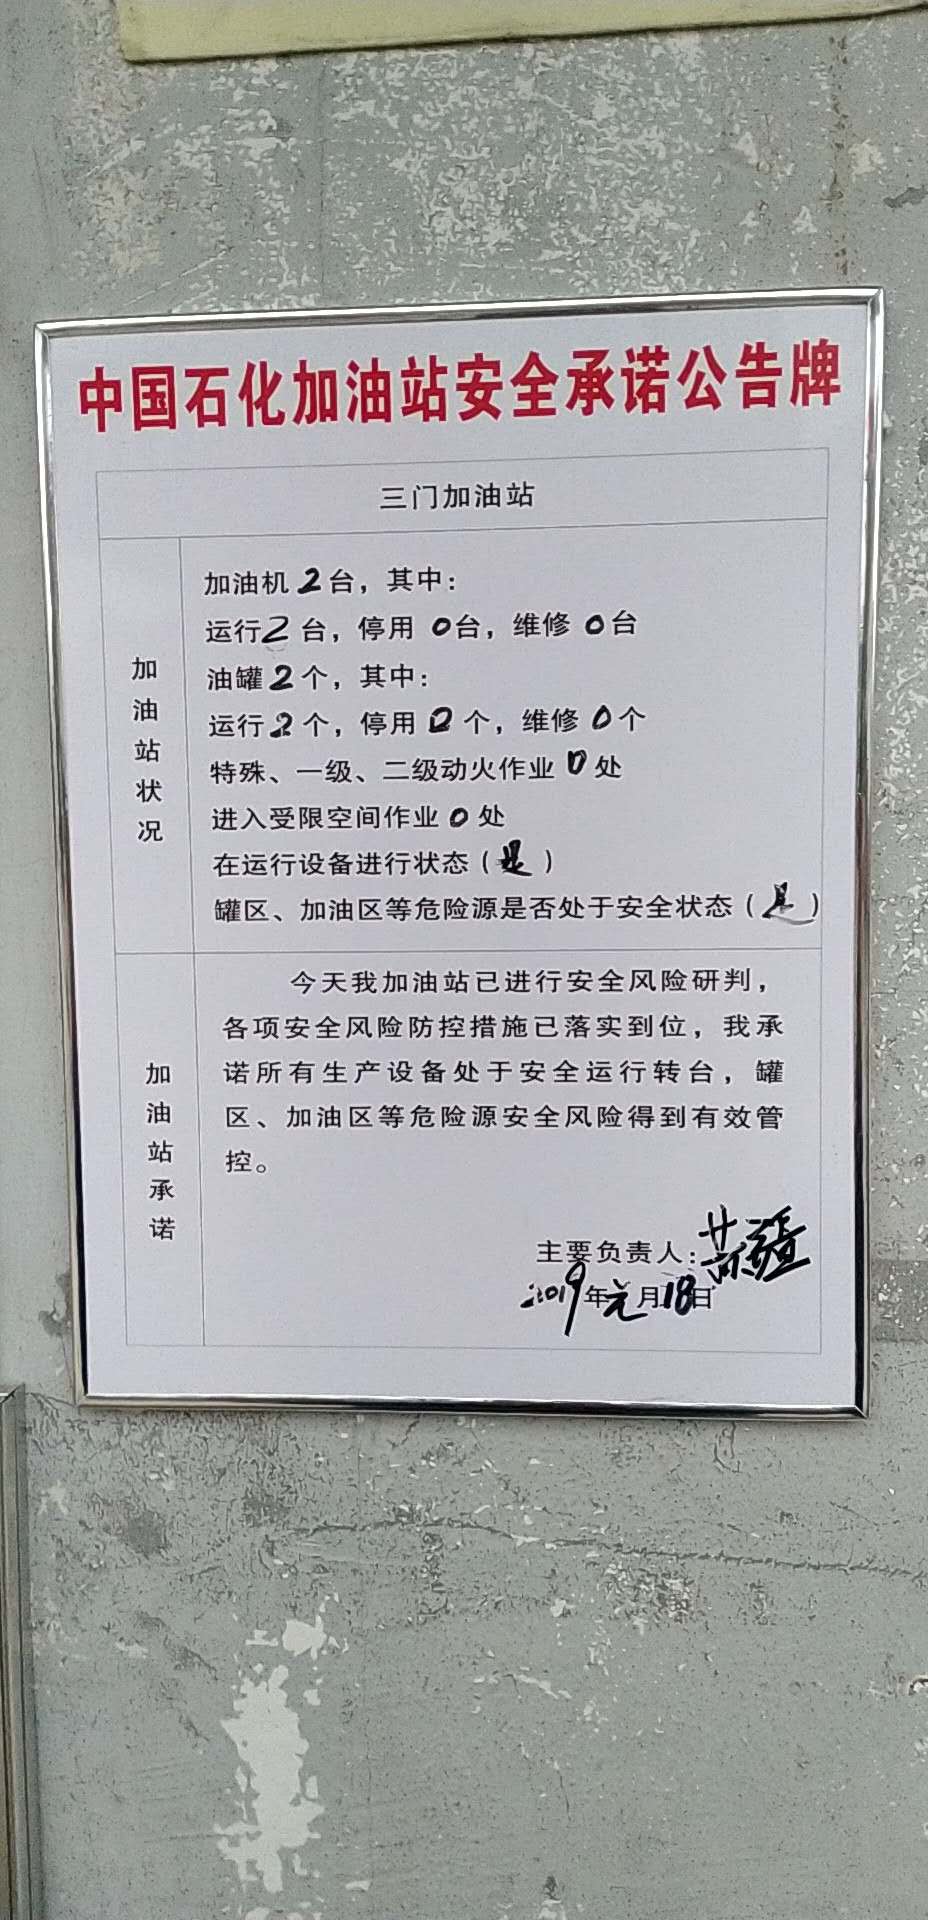 中国石化加油站安全承诺公告牌
三门加油站
加油站状况
加油机2台，其中：
运行2台，停用0台，维修0台
油罐2个，其中：
运行2个，停用0个，维修0个
特殊、一级、二级动火作业0处
进入受限空间作业0处
在运行设备进行状态（是）
罐区、加油区等危险源是否处于安全状态（是）
加油站承诺
今天我加油站已进行安全风险研判，
各项安全风险防控措施已落实到位，我承
诺所有生产设备处于安全运行转台，罐
区、加油区等危险源安全风险得到有效管
控。
主要负责人：
2019年元月18日